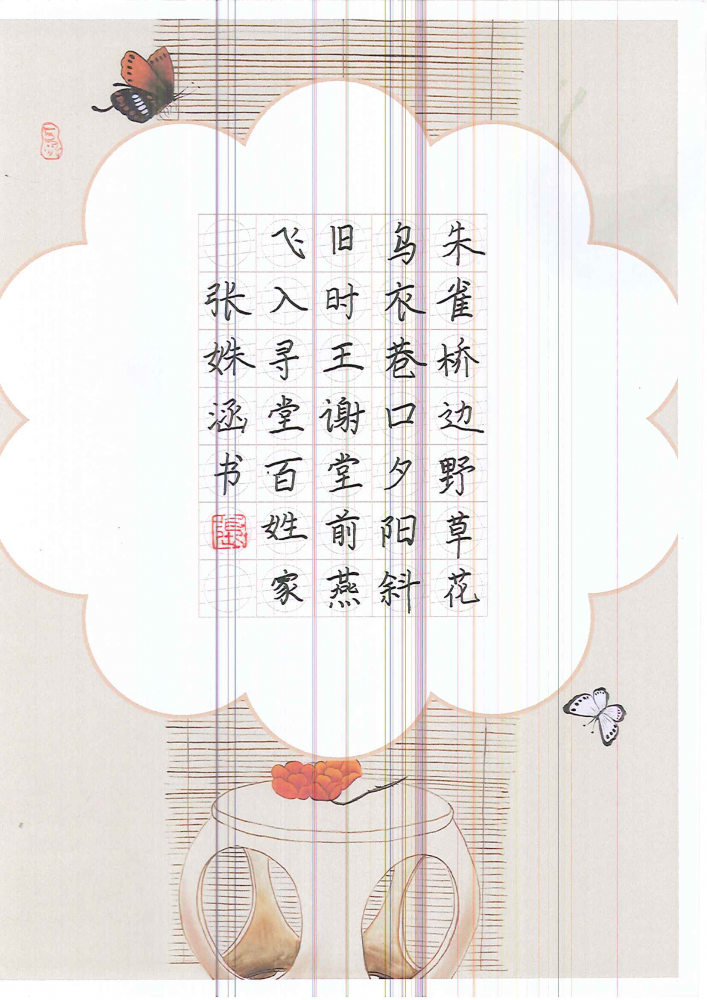 朱雀桥边野草花
乌衣巷口夕阳斜
旧时王谢堂前燕
飞入寻堂百姓家
张姝涵书
張